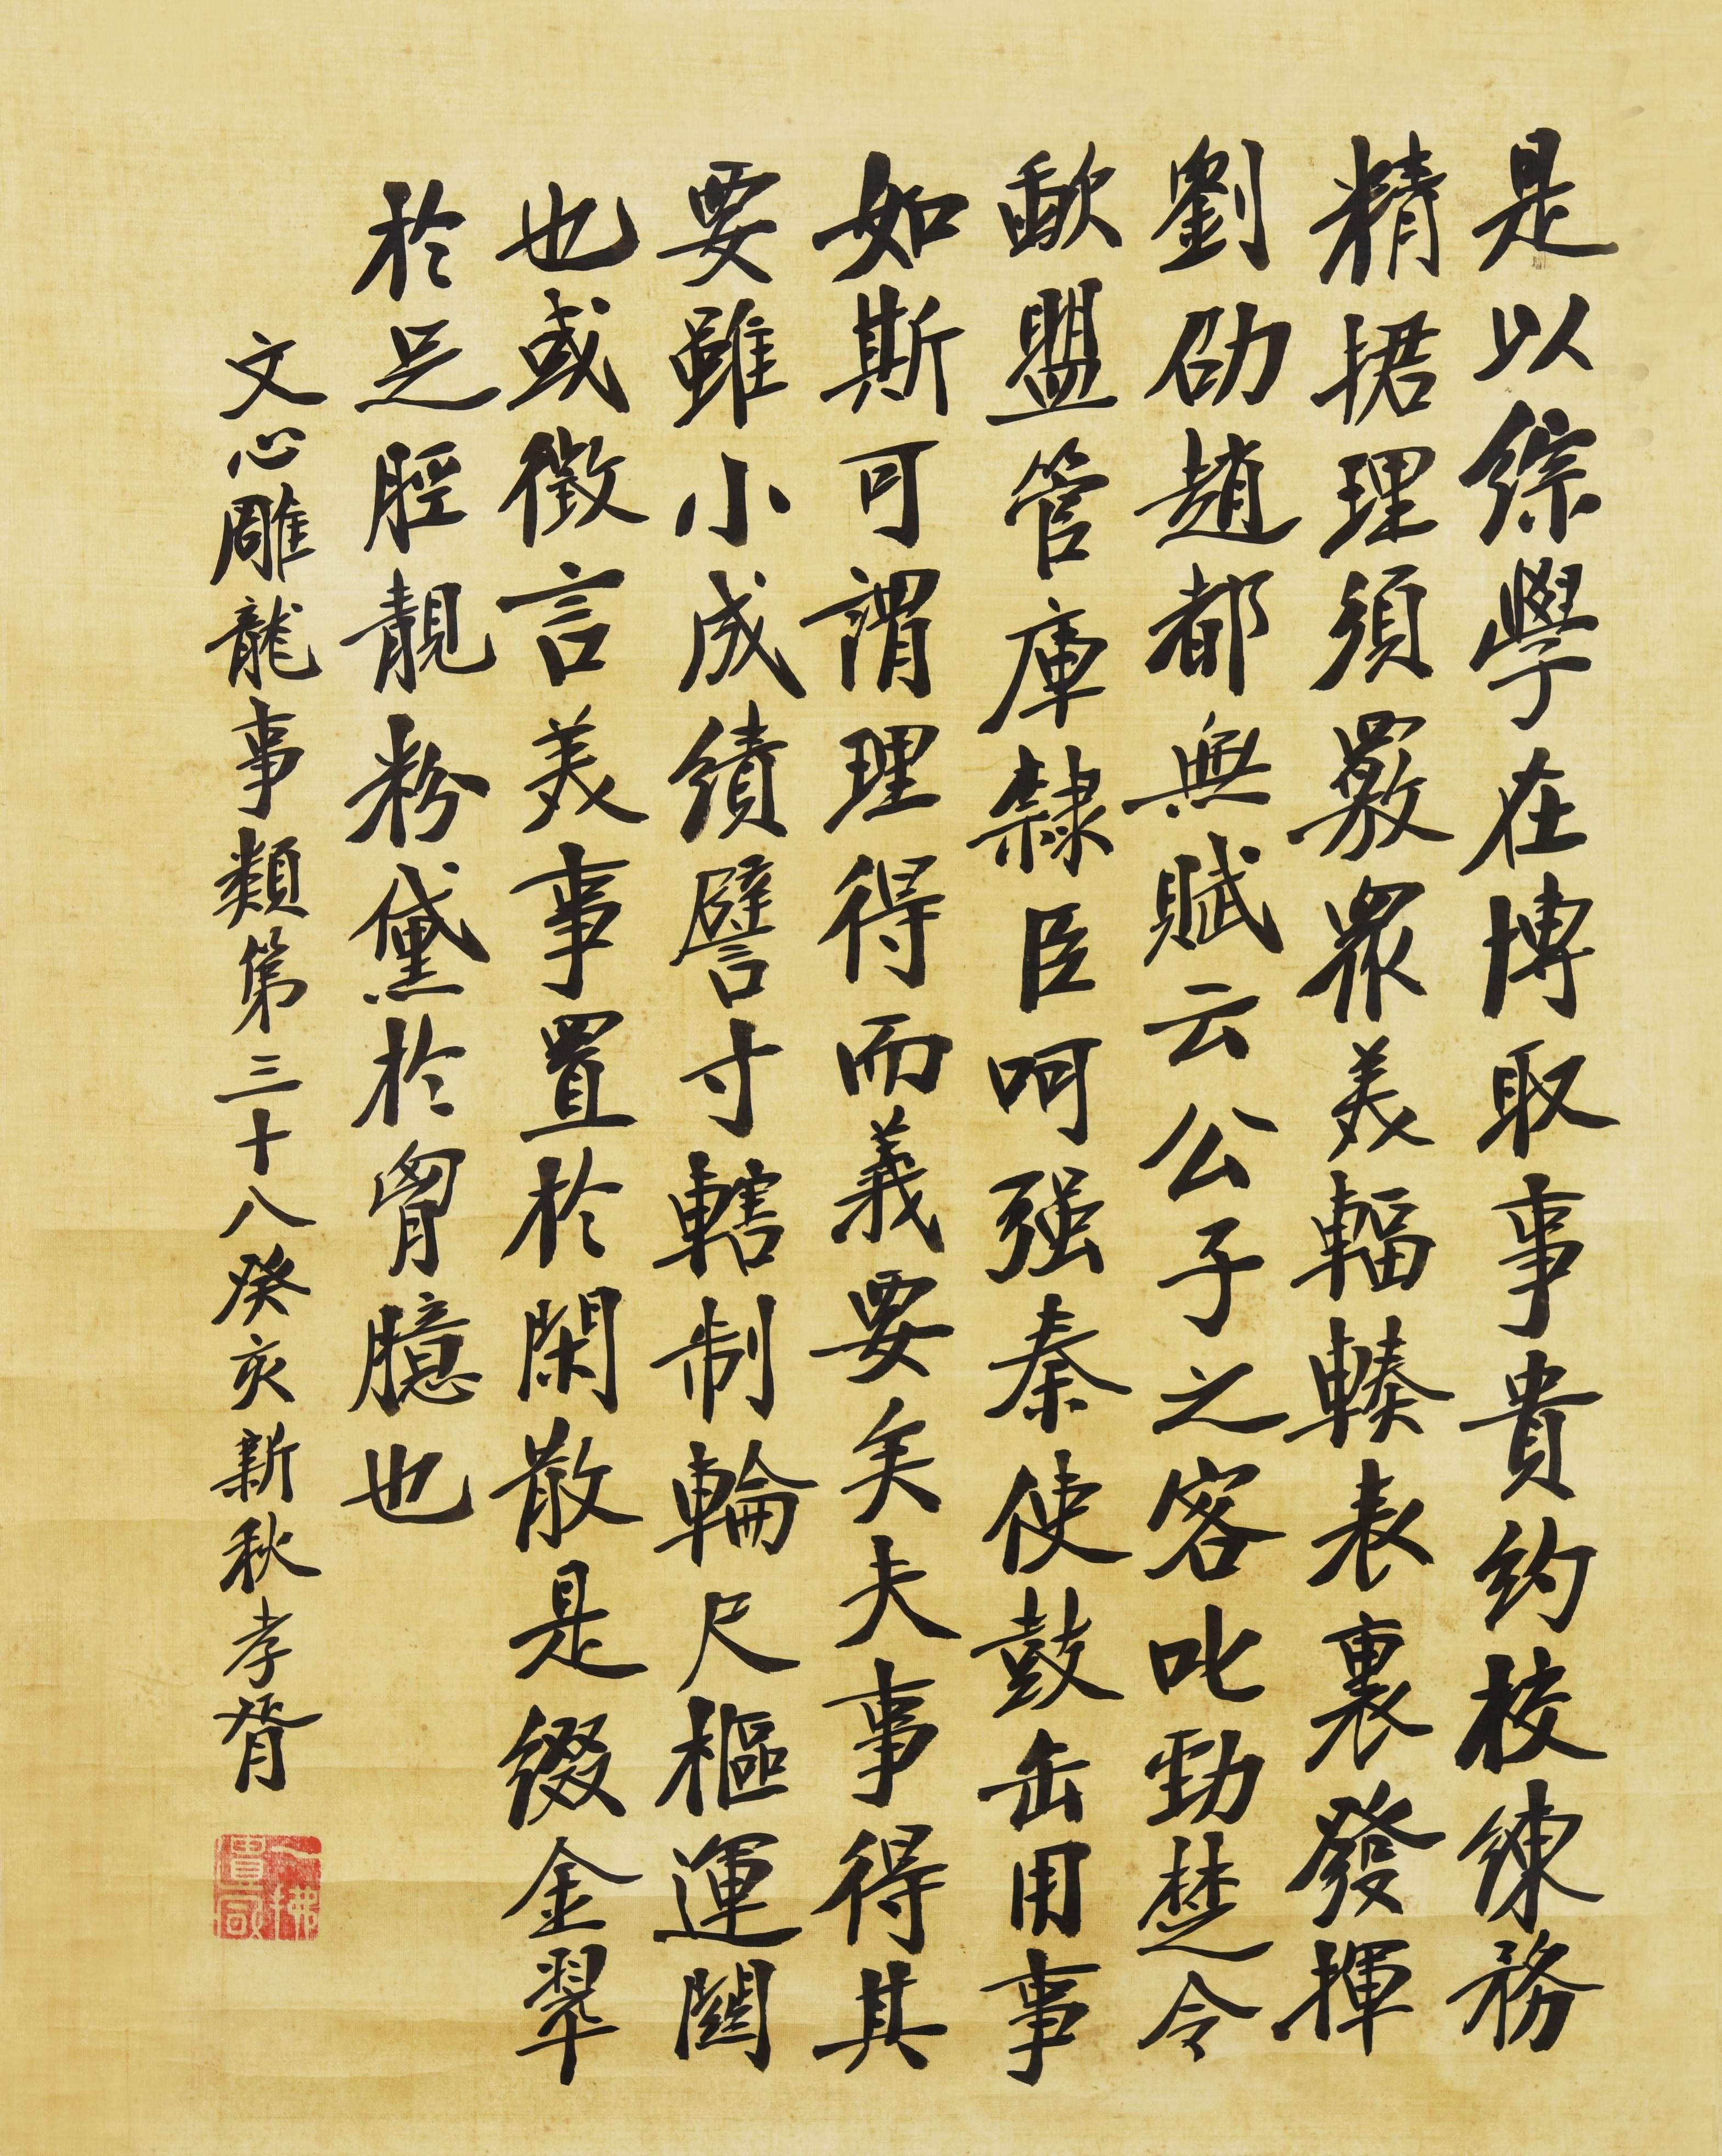 是以綜學在博取事貴約校練務
精捃理須覈眾美輻輳表裏發揮
劉劭趙都無賦云公子之客叱勁楚令
歃盟管庫隸臣呵强秦使鼓缶用事
如斯可謂理得而義要矣夫事得其
要雖小成績譬寸轄制輪尺樞運關
也或徵言美事置於閑散是綴金翠
於足脛靚粉黛於胷臆也
文心雕龍事類第三十八癸亥新秋孝胥